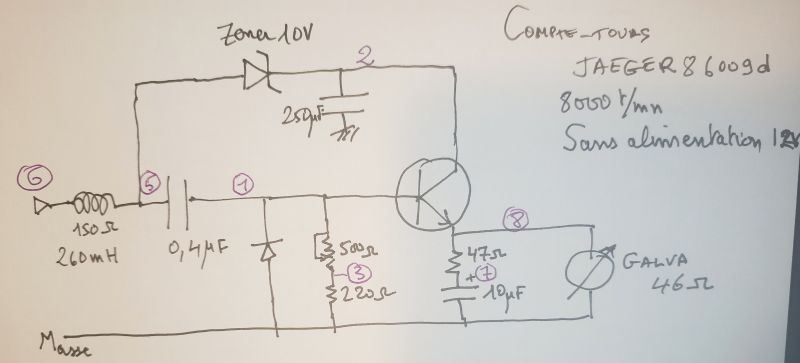 Zener 10V
COMPTE-TOURS
JAEGER 86009d
8000 t/mn
Sans alimentation 12V
2
250µF
6
5
1
150Ω
260mH
0,4µF
500Ω
3
220Ω
8
47Ω
+ 7
10µF
GALVA
46Ω
Masse